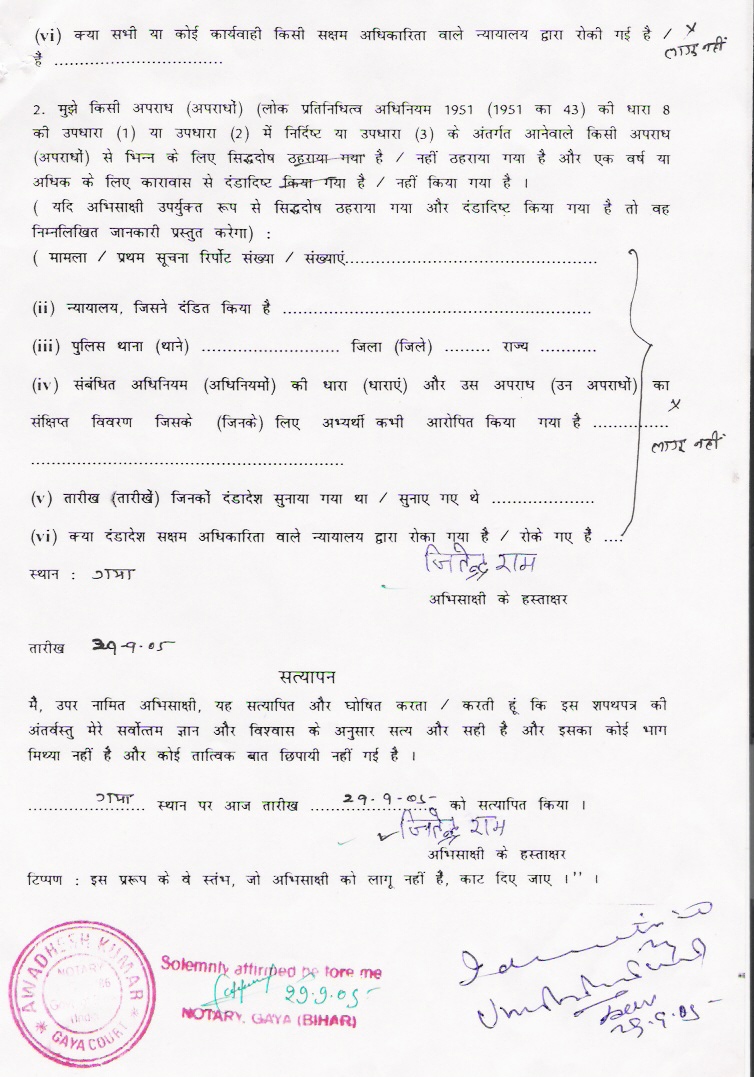 (vi) क्या सभी या कोई कार्यवाही किसी सक्षम अधिकारिता वाले न्यायालय द्वारा रोकी गई है / x
है .................................. लागू नहीं
2. मुझे किसी अपराध (अपराधों) (लोक प्रतिनिधित्व अधिनियम 1951 (1951 का 43) की धारा 8
की उपधारा (1) या उपधारा (2) में निर्दिष्ट या उपधारा (3) के अंतर्गत आनेवाले किसी अपराध
(अपराधों) से भिन्न के लिए सिद्धदोष ठहराया गया है / नहीं ठहराया गया है और एक वर्ष या
अधिक के लिए कारावास से दंडादिष्ट किया गया है / नहीं किया गया है ।
( यदि अभिसाक्षी उपर्युक्त रूप से सिद्धदोष ठहराया गया और दंडादिष्ट किया गया है तो वह
निम्नलिखित जानकारी प्रस्तुत करेगा) :
( मामला / प्रथम सूचना रिर्पोट संख्या / संख्याएं...................................................
(ii) न्यायालय, जिसने दंडित किया है ..............................................................
(iii) पुलिस थाना (थाने) ............................ जिला (जिले) ......... राज्य ...........
(iv) संबंधित अधिनियम (अधिनियमों) की धारा (धाराएं) और उस अपराध (उन अपराधों) का
x
संक्षिप्त विवरण जिसके (जिनके) लिए अभ्यर्थी कभी आरोपित किया गया है ...............
लागू नहीं
...............................................................
(v) तारीख (तारीखें) जिनकों दंडादेश सुनाया गया था / सुनाए गए थे .....................
(vi) क्या दंडादेश सक्षम अधिकारिता वाले न्यायालय द्वारा रोका गया है / रोके गए है ....
जितेन्द्र राम
स्थान : गया
अभिसाक्षी के हस्ताक्षर
तारीख 29-9-05
सत्यापन
मै, उपर नामित अभिसाक्षी, यह सत्यापित और घोषित करता / करती हूं कि इस शपथपत्र की
अंतर्वस्तु मेरे सर्वोत्तम ज्ञान और विश्वास के अनुसार सत्य और सही है और इसका कोई भाग
मिथ्या नहीं है और कोई तात्विक बात छिपायी नहीं गई है ।
गया स्थान पर आज तारीख 29-9-05 को सत्यापित किया ।
जितेन्द्र राम
अभिसाक्षी के हस्ताक्षर
टिप्पण : इस प्ररूप के वे स्तंभ, जो अभिसाक्षी को लागू नहीं है, काट दिए जाए ।'' ।
AWADHESH KUMAR
NOTARY
GAYA COURT
Solemnly affirmed before me
29.9.05
NOTARY, GAYA (BIHAR)
29.9.05